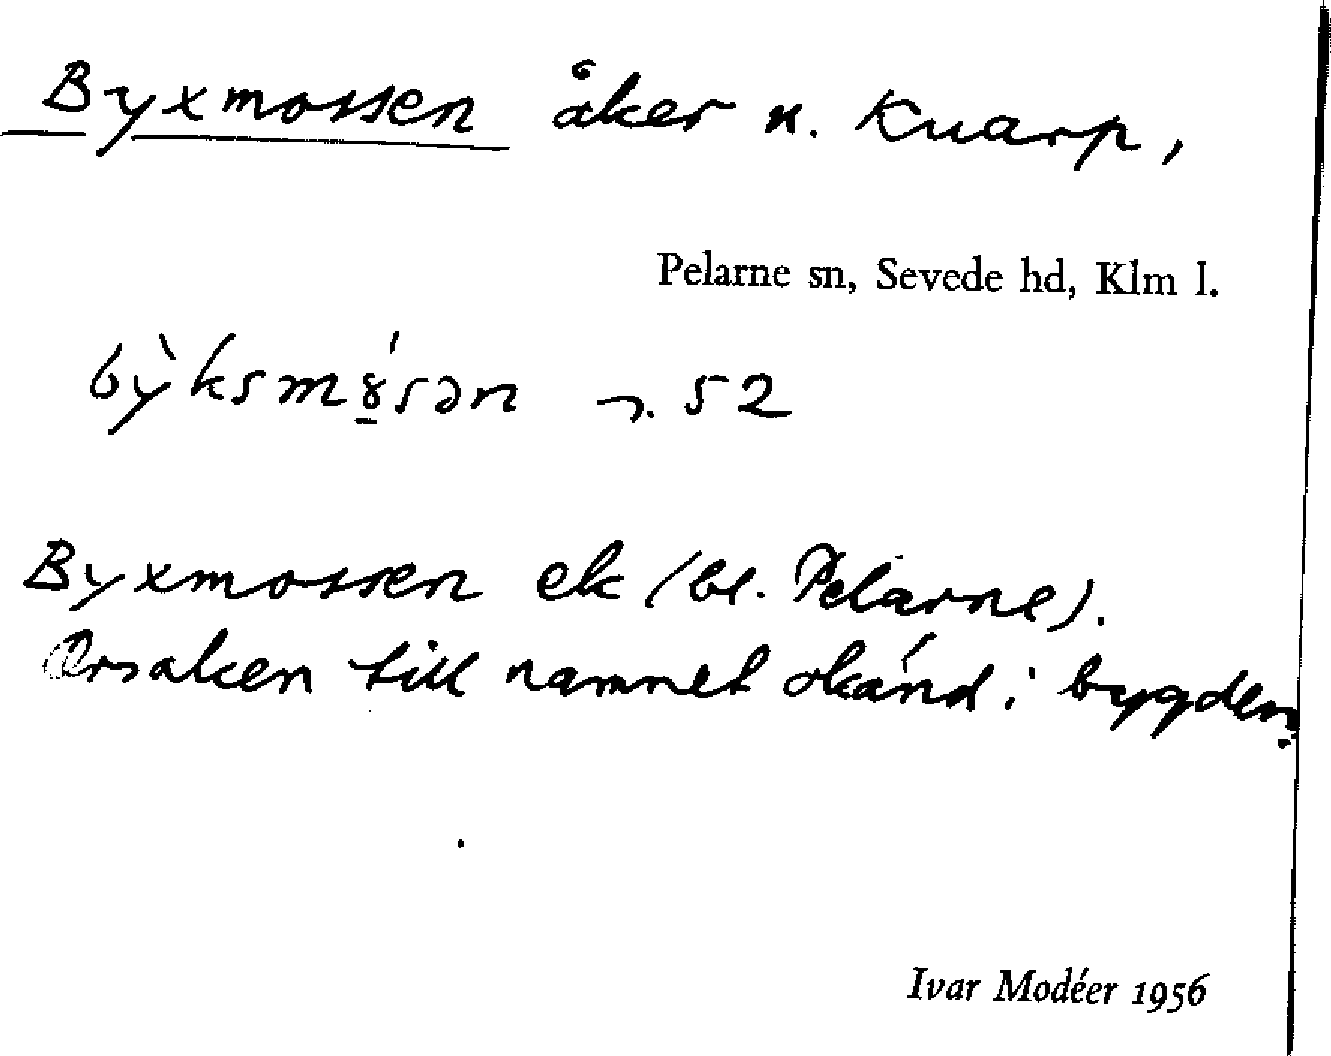 Byxmossen åker n. Knarp,
Pelarne sn, Sevede hd, Klm l.
by̍̀ksmɣ̱́sən 52
Byxmossen ek (bl. Pelarne).
Orsaken till namnet okänd i bygden.
Ivar Modéer 1956